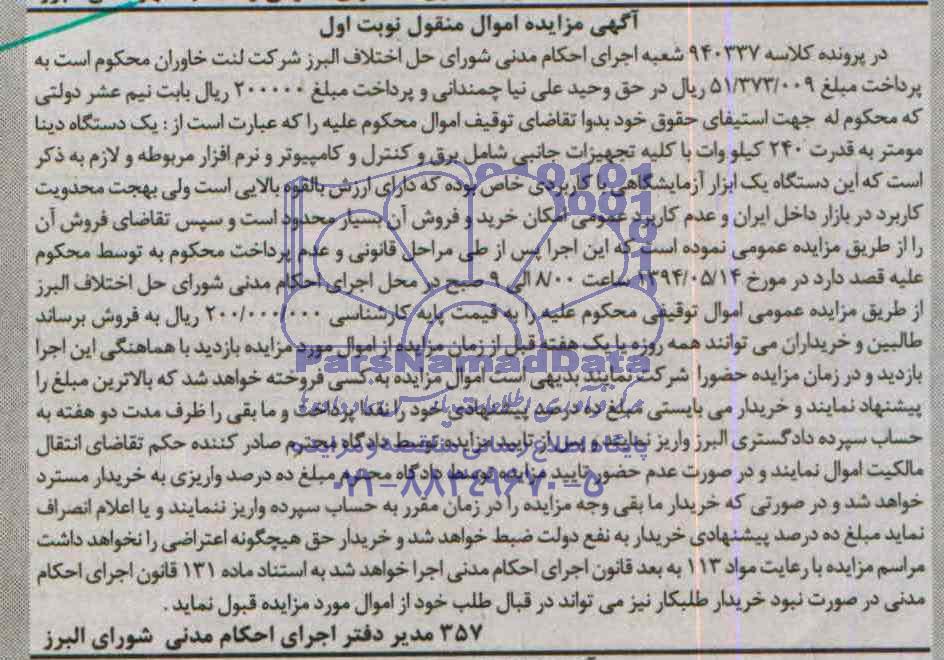 آگهی مزایده اموال منقول نوبت اول
در پرونده کلاسه ۹۴۰۳۳۷ شعبه اجرای احکام مدنی شورای حل اختلاف البرز شرکت لنت خاوران محکوم است به
پرداخت مبلغ ۵۱/۳۷۳/۰۰۹ ریال در حق وحید علی نیا چمندانی و پرداخت مبلغ ۲۰۰۰۰۰ ریال بابت نیم عشر دولتی
که محکوم له جهت استیفای حقوق خود بدوا تقاضای توقیف اموال محکوم علیه را که عبارت است از : یک دستگاه دینا
مومتر به قدرت ۲۴۰ کیلو وات با کلیه تجهیزات جانبی شامل برق و کنترل و کامپیوتر و نرم افزار مربوطه و لازم به ذکر
است که این دستگاه یک ابزار آزمایشگاهی با کاربردی خاص بوده که دارای ارزش بالقوه بالایی است ولی بهجت محدویت
کاربرد در بازار داخل ایران و عدم کاربرد عمومی امکان خرید و فروش آن بسیار محدود است و سپس تقاضای فروش آن
را از طریق مزایده عمومی نموده است که این اجرا پس از طی مراحل قانونی و عدم پرداخت محکوم به توسط محکوم
علیه قصد دارد در مورخ ۱۳۹۴/۰۵/۱۴ ساعت ۸/۰۰ الی ۹ صبح در محل اجرای احکام مدنی شورای حل اختلاف البرز
از طریق مزایده عمومی اموال توقیفی محکوم علیه را به قیمت پایه کارشناسی ۲۰۰/۰۰۰/۰۰۰ ریال به فروش برساند
طالبین و خریداران می توانند همه روزه یا یک هفته قبل از زمان مزایده از اموال مورد مزایده بازدید با هماهنگی این اجرا
بازدید و در زمان مزایده حضورا شرکت نمایند بدیهی است اموال مزایده به کسی فروخته خواهد شد که بالاترین مبلغ را
پیشنهاد نمایند و خریدار می بایستی مبلغ ده درصد پیشنهادی خود را نقدا پرداخت و ما بقی را ظرف مدت دو هفته به
حساب سپرده دادگستری البرز واریز نمایند و پس از تایید مزایده توسط دادگاه محترم صادر کننده حکم تقاضای انتقال
مالکیت اموال نمایند و در صورت عدم حضور تایید مزایده توسط دادگاه محترم مبلغ ده درصد واریزی به خریدار مسترد
خواهد شد و در صورتی که خریدار ما بقی وجه مزایده را در زمان مقرر به حساب سپرده واریز ننمایند و یا اعلام انصراف
نماید مبلغ ده درصد پیشنهادی خریدار به نفع دولت ضبط خواهد شد و خریدار حق هیچگونه اعتراضی را نخواهد داشت
مراسم مزایده با رعایت مواد ۱۱۳ به بعد قانون اجرای احکام مدنی اجرا خواهد شد به استناد ماده ۱۳۱ قانون اجرای احکام
مدنی در صورت نبود خریدار طلبکار نیز می تواند در قبال طلب خود از اموال مورد مزایده قبول نماید .
۳۵۷ مدیر دفتر اجرای احکام مدنی شورای البرز
ParsNamadData
پایگاه اطلاع رسانی مناقصه و مزایده
۰۲۱-۸۸۳۴۹۶۷۰-۵